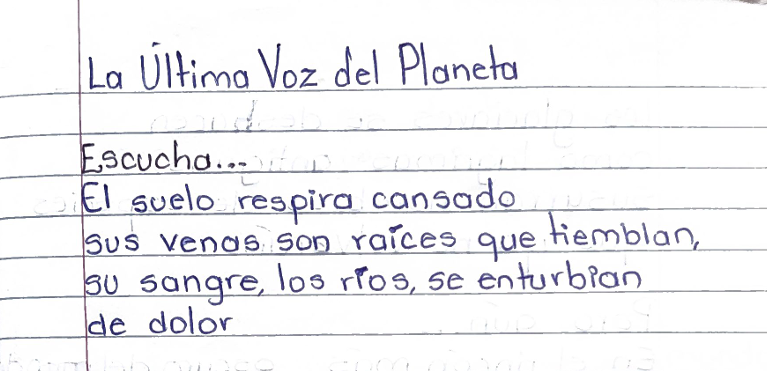 La Última Voz del Planeta
Escucha...
El suelo respira cansado
sus venas son raíces que tiemblan,
su sangre, los ríos, se enturbian
de dolor